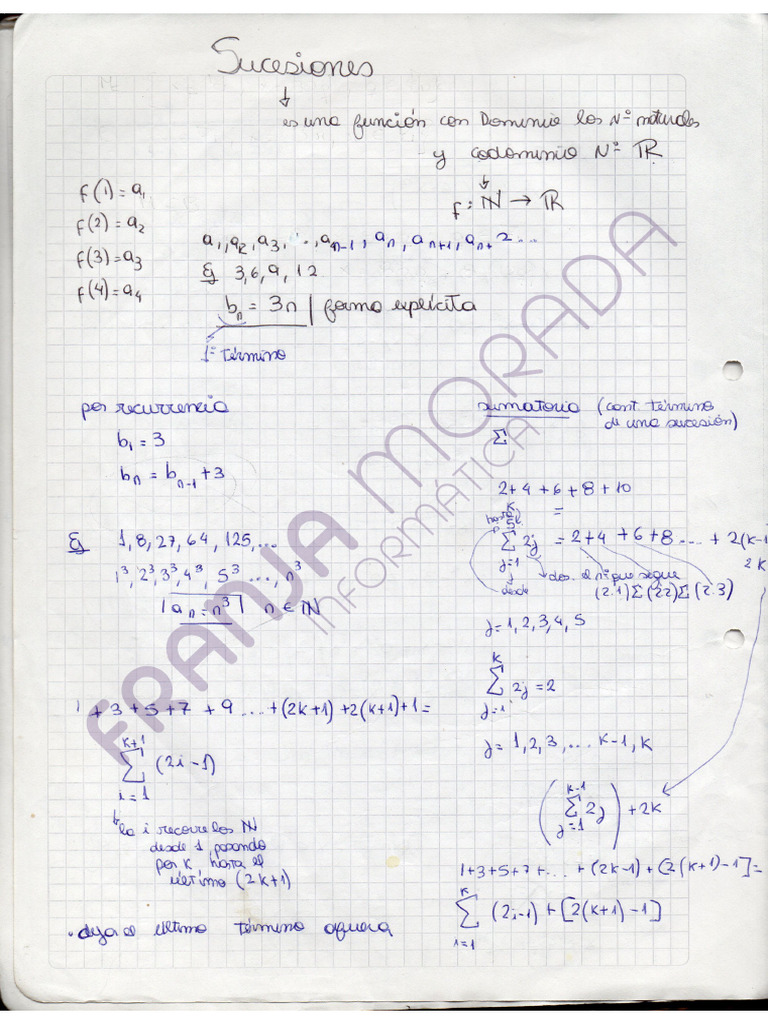 Sucesiones
↓
es una función con Dominio los Nº naturales
y codominio Nº ℝ
↓
f: ℕ → ℝ
f(1) = a₁
f(2) = a₂
f(3) = a₃
f(4) = a₄
a₁, a₂, a₃, ..., aₙ₋₁, aₙ, aₙ₊₁, aₙ₊ 2 ...
Ej 3, 6, 9, 12
bₙ = 3n | forma explícita
1º término
por recurrencia
b₁ = 3
bₙ = bₙ₋₁ + 3
Ej 1, 8, 27, 64, 125, ...
1³, 2³, 3³, 4³, 5³ ..., n³
| aₙ = n³ | n ∈ ℕ
1 + 3 + 5 + 7 + 9 ... + (2k+1) + 2(k+1) + 1 =
k+1
Σ (2i - 1)
i = 1
↳ la i recorre los ℕ
desde 1, pasando
por K hasta el
último (2k+1)
• deja el último término afuera
sumatoria (cant. término
de una sucesión)
Σ
2 + 4 + 6 + 8 + 10
=
hasta
K
5
Σ 2j = 2 + 4 + 6 + 8 ... + 2(k-1
j = 1
2k
j
desde
dos. el nº que sigue
(2.1) Σ (2.2) Σ (2.3)
j = 1, 2, 3, 4, 5
K
Σ 2j = 2
j = 1
j = 1, 2, 3, ... k-1, k
k-1
( Σ 2j ) + 2k
j = 1
1 + 3 + 5 + 7 + ... + (2k-1) + [2(k+1) - 1] =
K
Σ (2i-1) + [2(k+1) - 1]
i = 1
FRANJA MORADA
INFORMÁTICA